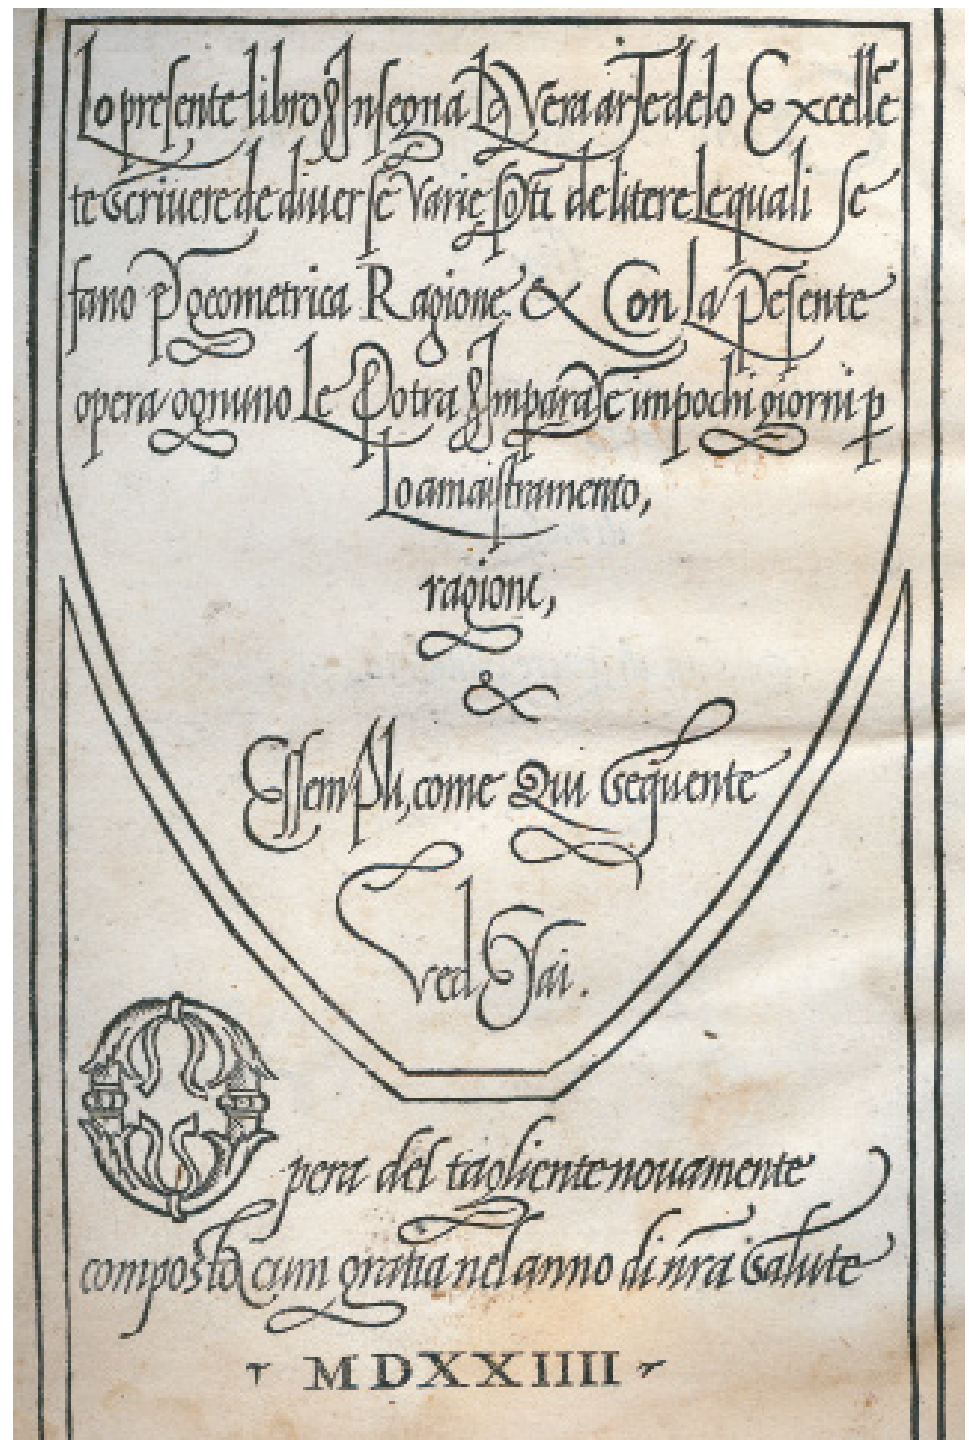 Lo presente libro Insegna La Vera arte delo Excellē
te scriuere de diuerse varie sorti de litere le quali se
fano p geometrica Ragione. & Con La pñsente
opera ognuno Le Potra Imparare impochi giorni p
Lo amaistramento,
ragione,
&
Essempli, come Qui sequente
vedrai.
Opera del tagliente nouamente
composta cum gratia nel anno di nr̄a salute
MDXXIIII